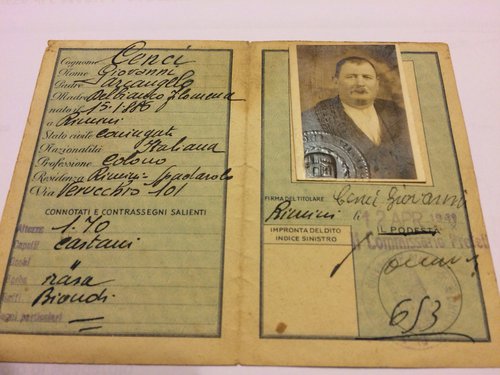 Cognome Cenci
Nome Giovanni
Padre Arcangelo
Madre Filomena
nato il 15.1.886
a Rimini
Stato civile coniugato
Nazionalità Italiana
Professione Colono
Residenza Rimini Spadarolo
Via Verucchio 101
CONNOTATI E CONTRASSEGNI SALIENTI
1.70
Capelli castani
Occhi "
rasa
Biondi
Segni particolari =
FIRMA DEL TITOLARE Cenci Giovanni
Rimini li 12 APR.
IMPRONTA DEL DITO
INDICE SINISTRO
IL PODESTÀ
Il Commissario
653